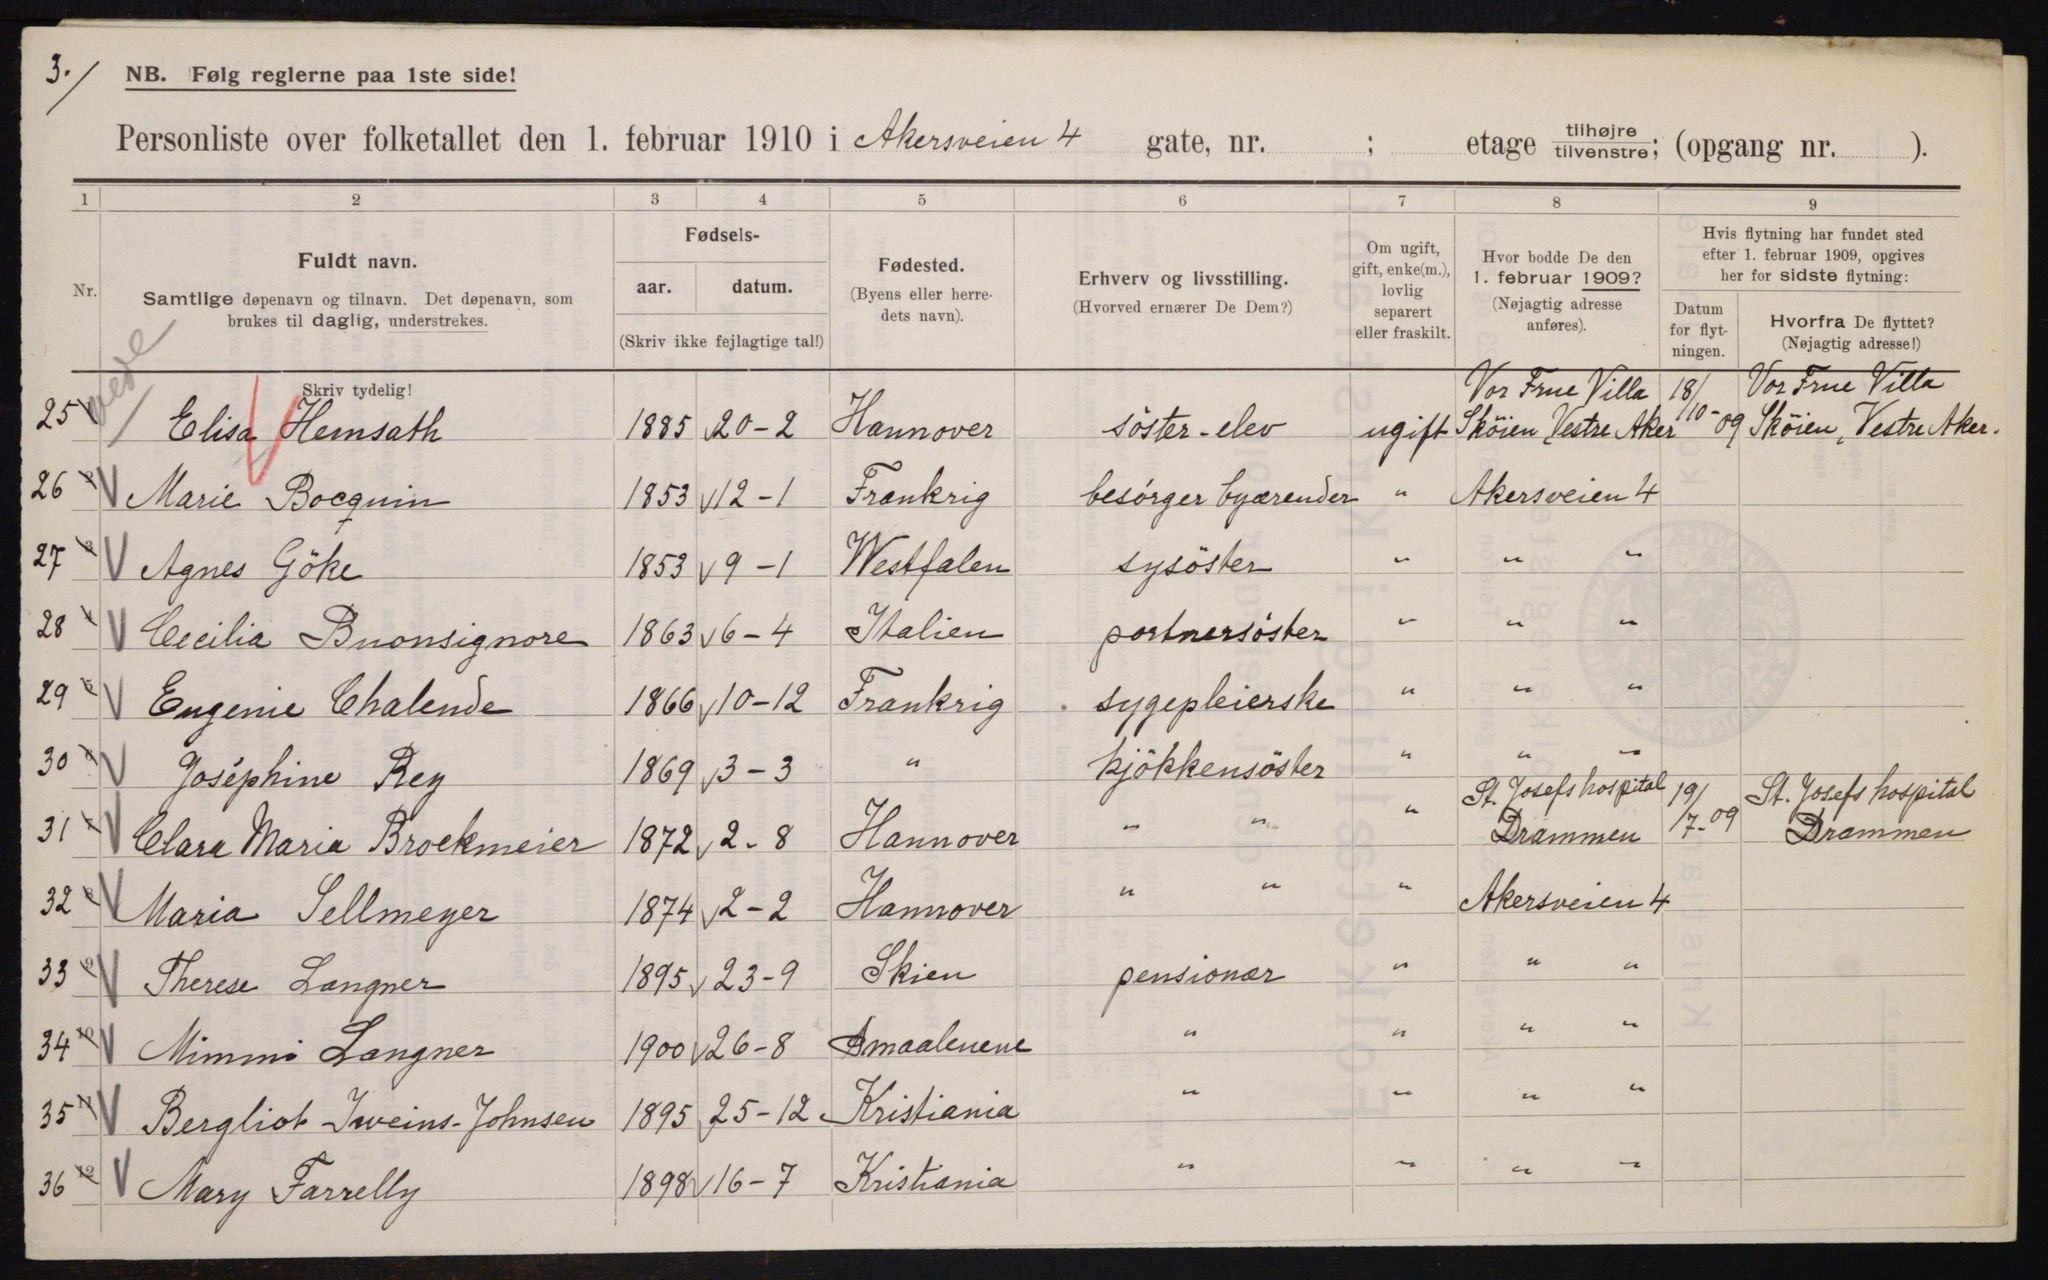 3.
NB. Følg reglerne paa 1ste side!
Personliste over folketallet den 1. februar 1910 i Akersveien 4 gate, nr. ; etage tilhøjre tilvenstre; (opgang nr. ).
1 2 3 4 5 6 7 8 9
Nr.
Fuldt navn.
Samtlige døpenavn og tilnavn. Det døpenavn, som
brukes til daglig, understrekes.
Skriv tydelig!
Fødsels-
aar. datum.
(Skriv ikke fejlagtige tal!)
Fødested.
(Byens eller herre-
dets navn).
Erhverv og livsstilling.
(Hvorved ernærer De Dem?)
Om ugift,
gift, enke(m.),
lovlig
separert
eller fraskilt.
Hvor bodde De den
1. februar 1909?
(Nøjagtig adresse
anføres).
Hvis flytning har fundet sted
efter 1. februar 1909, opgives
her for sidste flytning:
Datum
for flyt-
ningen.
Hvorfra De flyttet?
(Nøjagtig adresse!)
Vor Frue Villa 18/ Vor Frue Villa
25 Elisa Hemsath 1885 20-2 Hannover söster-elev ugift Sköien, Vestre Aker 10-09 Sköien, Vestre Aker.
26 Marie Bocquin 1853 12-1 Frankrig besörger byærender " Akersveien 4
27 Agnes Göke 1853 9-1 Westfalen sysöster " " "
28 Cecilia Buonsignore 1863 6-4 Italien portnersöster " " "
29 Eugenie Chalende 1866 10-12 Frankrig sygepleierske " " "
30 Joséphine Rey 1869 3-3 " kjökkensöster " " "
St. Josefs hospital 19/ St. Josefs hospital
31 Clara Maria Brockmeier 1872 2-8 Hannover " " " Drammen 7-09 Drammen
32 Maria Sellmeyer 1874 2-2 Hannover " " " Akersveien 4
33 Therese Langner 1895 23-9 Skien pensionær " " "
34 Mimmi Langner 1900 26-8 Smaalenene " " " "
35 Bergliot Iweins-Johnsen 1895 25-12 Kristiania " " " "
36 Mary Farrelly 1898 16-7 Kristiania " " " "